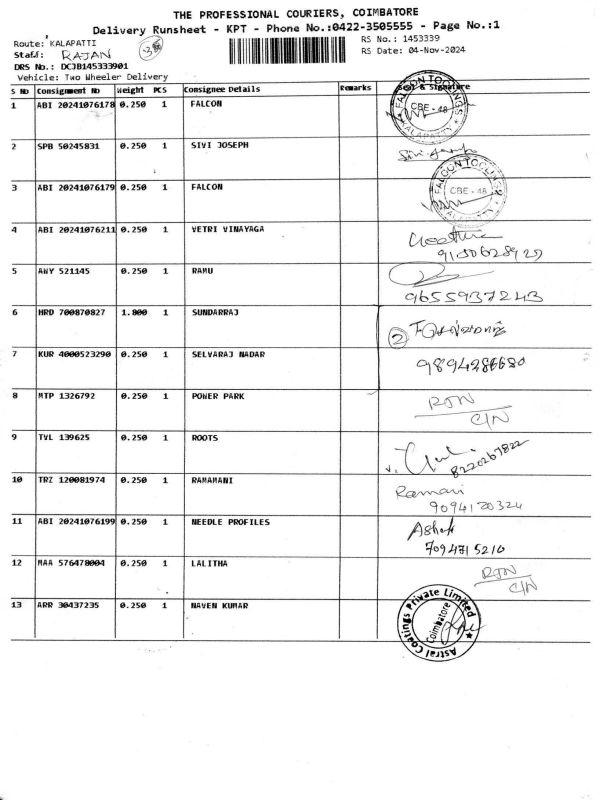 THE PROFESSIONAL COURIERS, COIMBATORE
Delivery Runsheet - KPT - Phone No.:0422-3505555 - Page No.:1
Route: KALAPATTI
RS No.: 1453339
Staff: RAJAN
RS Date: 04-Nov-2024
DRS No.: DCJB145333901
Vehicle: Two Wheeler Delivery
S No Consignment No Weight PCS Consignee Details Remarks Seal & Signature
1 ABI 20241076178 0.250 1 FALCON
FALCON TOOLINGS CBE - 48 KALAPATTY
2 SPB 50245831 0.250 1 SIVI JOSEPH
3 ABI 20241076179 0.250 1 FALCON
FALCON TOOLINGS CBE - 48 KALAPATTY
4 ABI 20241076211 0.250 1 VETRI VINAYAGA
5 AWY 521145 0.250 1 RAMU
9655937243
6 HRD 700870827 1.800 1 SUNDARRAJ
2
7 KUR 4000523290 0.250 1 SELVARAJ NADAR
9894286680
8 MTP 1326792 0.250 1 POWER PARK
RTN
C/N
9 TVL 139625 0.250 1 ROOTS
8220267822
10 TRZ 120081974 0.250 1 RAMAMANI
Ramani
9094120324
11 ABI 20241076199 0.250 1 NEEDLE PROFILES
Ashok
7094715210
12 MAA 576478004 0.250 1 LALITHA
RTN
C/N
13 ARR 30437235 0.250 1 NAVEN KUMAR
Astral Coatings Private Limited Coimbatore